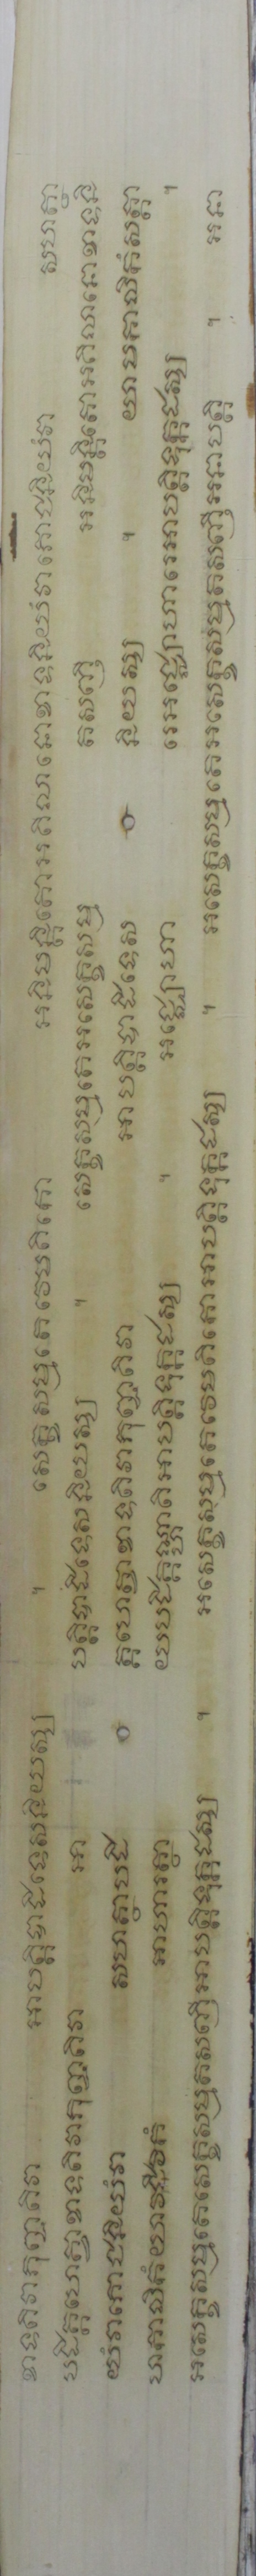 ខាទតិវាភុញ្ជតិវា អាបត្តិបាដិទេសនិយស្ស ។ សេក្ខសម្មតេវេមតិកោ អនិមន្តិតោអគិលានោខាទនិយំវាភោជនិយំវា សហត្ថា
បដិគ្គហេត្វាខាទតិវាភុញ្ជតិវា អា បត្តិបាដិទេសនិយស្ស ។ សេក្ខសម្មតេអសេក្ខសម្ម តសញី អនិមន្តិតោអគិលានោខាទនិ
យំវាភោជនិយំវា សហត្ថាបដិ គ្គហេត្វាខាទតិវាភុញ្ជតិវា អាបត្តិបាដិទេស និយស្ស ។ យាមកាលិកំសត្តា
ហកាលិកំយាវជីវិកំ អាហារត្ថា យបដិគ្គណ្ហាតិអាបត្តិទុក្កដស្ស ។ អជ្ឈោហា រេអជ្ឈោហារេអាបត្តិទុក្កដស្ស ។
អសេក្ខសម្មតេសេក្ខសម្មតសញីអាបត្តិទុក្កដស្ស ។ អសេក្ខសម្មតេវេមតិកោអាបត្តិទុក្កដស្ស ។ អសេក្ខសម្មតេអសេក្ខសម្មតសញីអនាបត្តិ ។ អនា